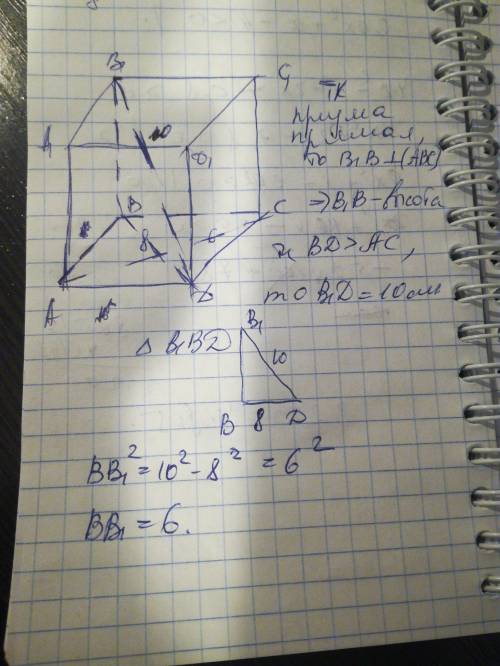 B₁
C₁
A₁
10
D₁
B
C
8
6
A
D
Тк
призма
прямая,
то B₁B⊥(ABC)
⇒B₁B - высота
тк BD>AC,
то B₁D = 10 см
Δ B₁BD
B₁
10
B 8 D
BB₁² = 10² - 8² = 6²
BB₁ = 6.